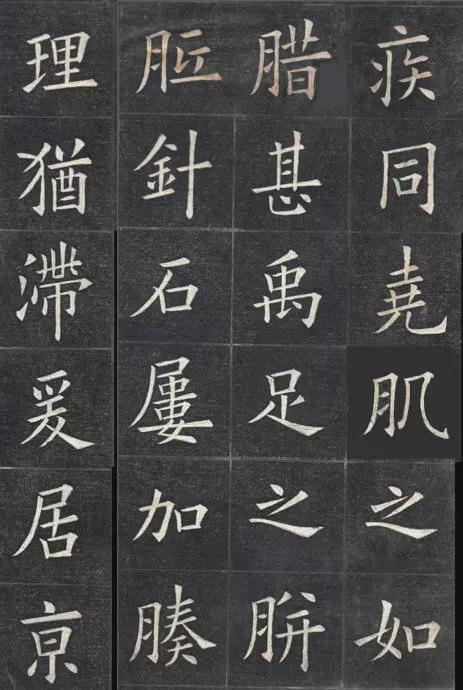 疾同堯肌之如
腊甚禹足之胼
胝針石屢加腠
理猶滯爰居亰